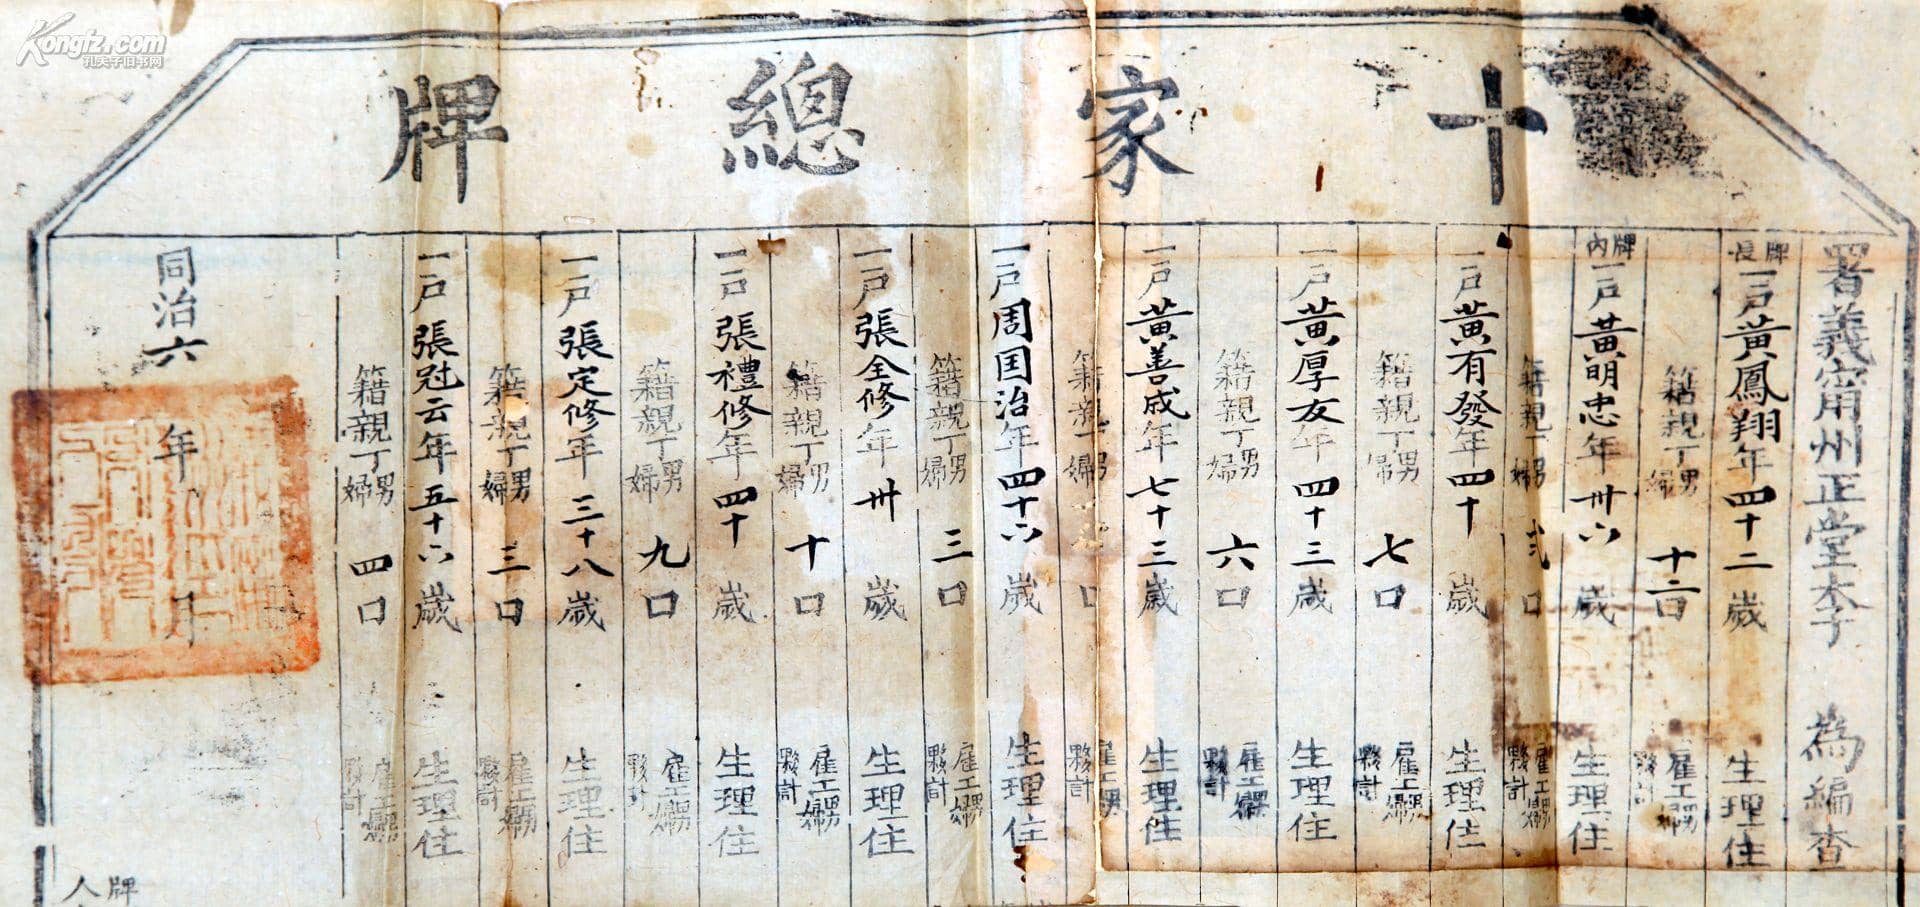 十家總牌
署義甯州正堂李 為編查
牌長 一戶黃鳳翔年四十二歲 生理住
籍親丁男婦十二口 雇工男婦夥計
牌內 一戶黃明忠年卅六歲 生理住
籍親丁男婦弍口 雇工男婦夥計
一戶黃有發年四十歲 生理住
籍親丁男婦七口 雇工男婦夥計
一戶黃厚友年四十三歲 生理住
籍親丁男婦六口 雇工男婦夥計
一戶黃善成年七十三歲 生理住
籍親丁男婦口 雇工男婦夥計
一戶周国治年四十六歲 生理住
籍親丁男婦三口 雇工男婦夥計
一戶張全修年卅歲 生理住
籍親丁男婦十口 雇工男婦夥計
一戶張禮修年四十歲 生理住
籍親丁男婦九口 雇工男婦夥計
一戶張定修年三十八歲 生理住
籍親丁男婦三口 雇工男婦夥計
一戶張冠云年五十六歲 生理住
籍親丁男婦四口 雇工男婦夥計
同治六年 月
牌
人
Kongfz.com
孔夫子旧书网